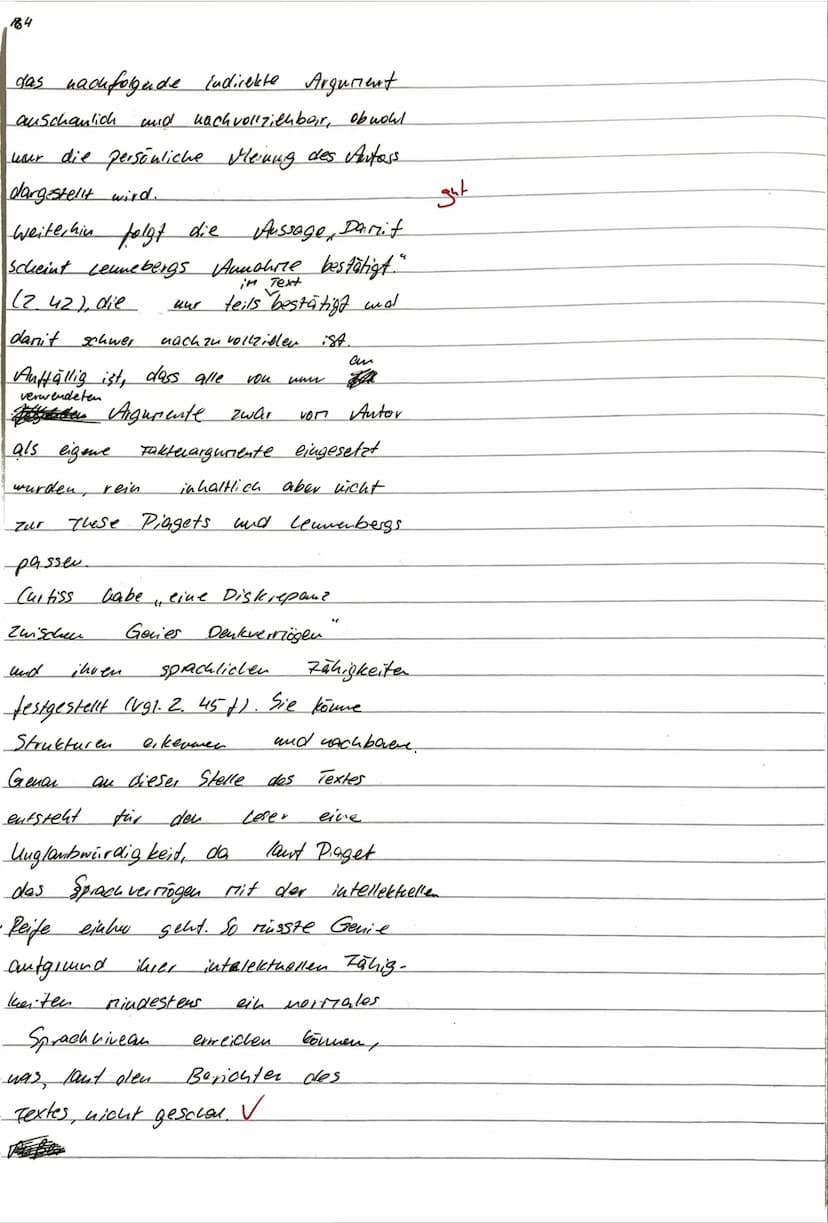 184
das nachfolgende indirekte Argument
anschaulich und nachvollziehbar, obwohl
nur die persönliche Meinung des Autors
dargestellt wird.
gut
Weiterhin folgt die Aussage „Damit
scheint Lennebergs Annahme bestätigt."
(Z. 42), die nur teils im Text bestätigt und
damit schwer nachzuvollziehen ist.
Auffällig ist, dass alle von nun an
verwendeten Argumente zwar vom Autor
als eigene Faktenargumente eingesetzt
wurden, rein inhaltlich aber nicht
zur These Piagets und Lennenbergs
passen.
Curtiss habe „eine Diskrepanz
zwischen Genies Denkvermögen"
und ihren sprachlichen Fähigkeiten
festgestellt (vgl. Z. 45 f). Sie könne
Strukturen erkennen und nachbauen.
Genau an dieser Stelle des Textes
entsteht für den Leser eine
Unglaubwürdigkeit, da laut Piaget
das Sprachvermögen mit der intellektuellen
Reife einher geht. So müsste Genie
aufgrund ihrer intelektuellen Fähig-
keiten mindestens ein normales
Sprachniveau erreichen können,
was, laut den Berichten des
Textes, nicht geschah. ✓